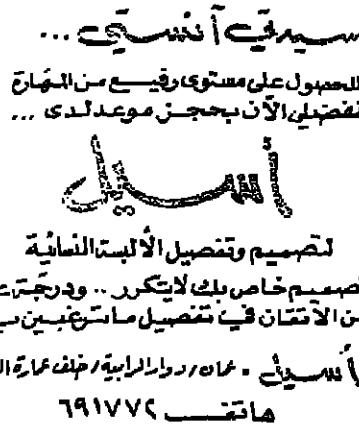 سيدتي آنستي ...
للحصول على مستوى رفيع من المهارة
تفضلي الآن بحجز موعد لدى ...
أسيل
لتصميم وتفصيل الألبسة النسائية
تصميم خاص بك لايتكرر .. ودرجة
من الاتقان في تفصيل ماترغبين
أسيل - عمان / دوار الرابية / خلف عمارة
هاتف ٦٩١٧٧٢